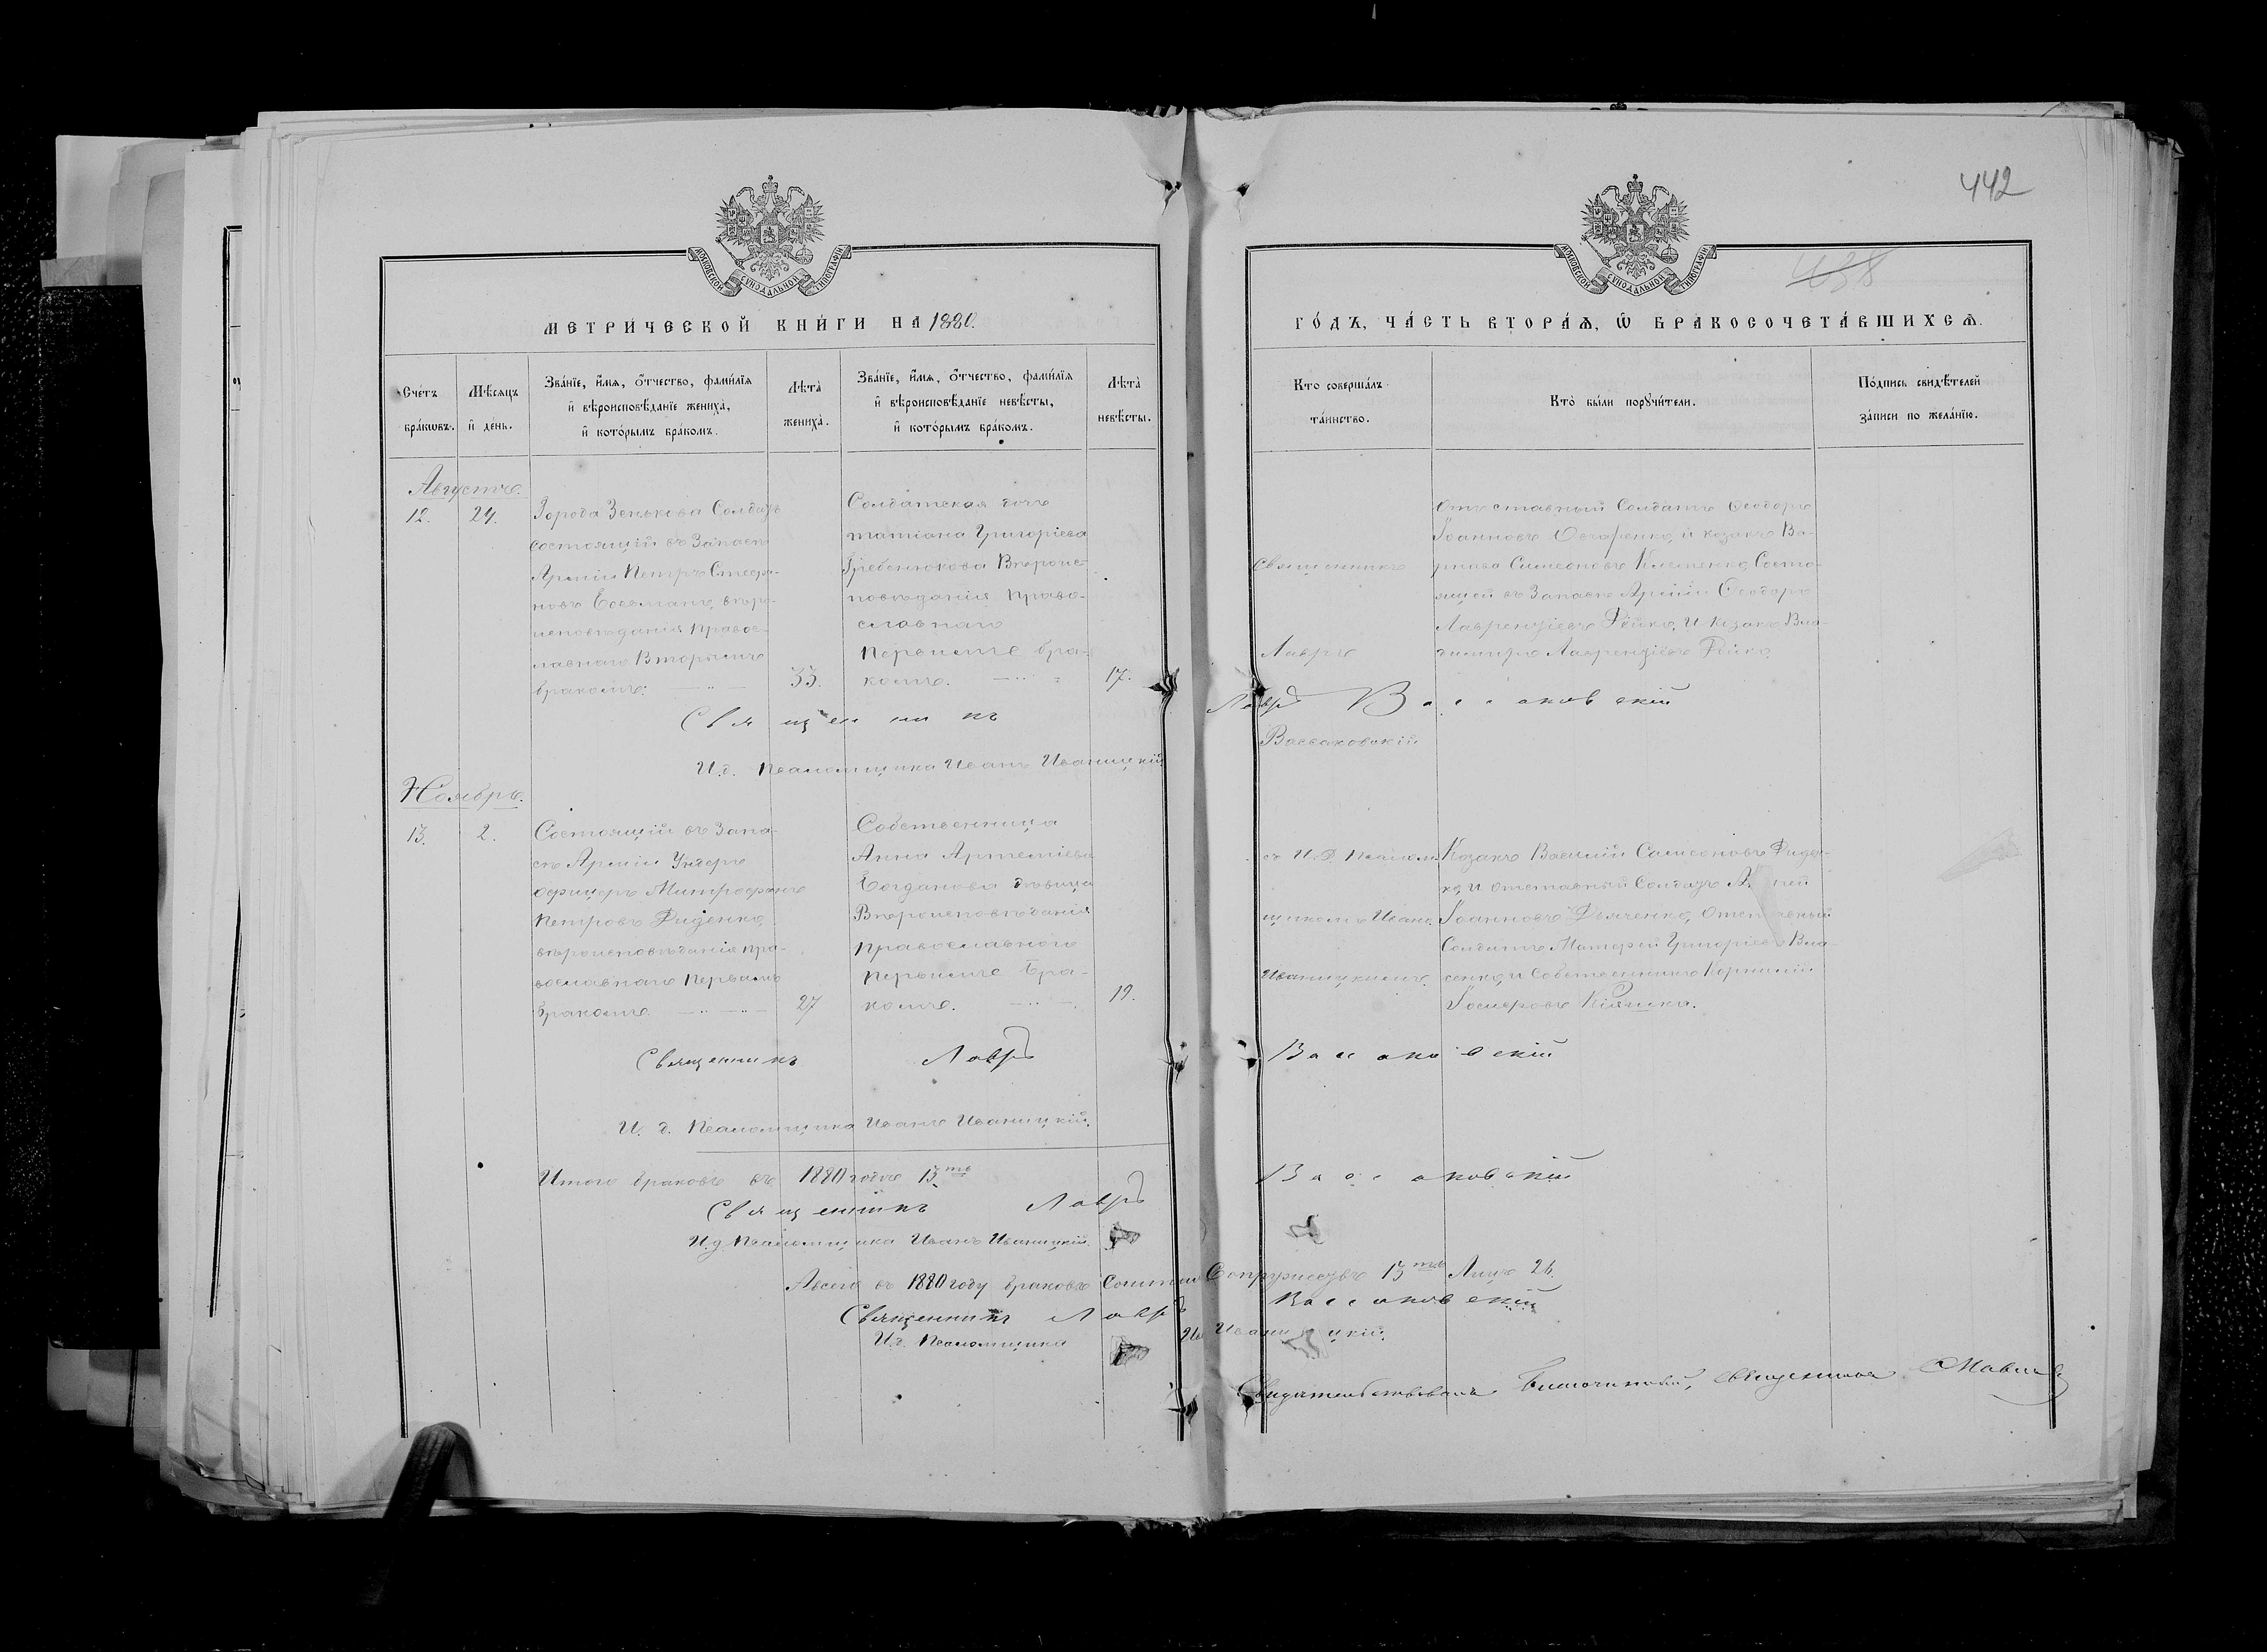 442
438
МОСКОВСКОЙ СѴНОДАЛЬНОЙ ТИПОГРАФІИ
МОСКОВСКОЙ СѴНОДАЛЬНОЙ ТИПОГРАФІИ
МЕТРИ́ЧЕСКОЙ КНИ́ГИ НА 1880.
ГО́ДЪ, ЧА́СТЬ ВТОРА́Ѧ, Ѽ БРАКОСОЧЕТА́ВШИХСѦ.
Сче́тъ бра́кѡвъ.
Мѣ́сяцъ и҆ де́нь.
Зва́нїе, и҆́мѧ, ѻ҆́тчество, фами́лїѧ
и҆ вѣроисповѣ́данїе жениха̀,
и҆ кото́рымъ бра́комъ.
Лѣта̀
жениха̀.
Зва́нїе, и҆́мѧ, ѻ҆́тчество, фами́лїѧ
и҆ вѣроисповѣ́данїе невѣ́сты,
и҆ кото́рымъ бра́комъ.
Лѣта̀
невѣ́сты.
Кто соверша́лъ
та́инство.
Кто̀ бы́ли порꙋчи́тели.
По́дпись свидѣ́телей
за́писи по жела́нїю.
Августъ.
12.
24.
Города Зенькова Солдатъ
состоящій въ Запасѣ
Арміи Петръ Стефа-
новъ вѣро-
исповѣданія правос-
лавнаго Вторымъ
бракомъ.
33.
Солдатская дочь
татіана Григоріева
Гребенюкова Вѣроис-
повѣданія право-
славнаго
Первымъ бра-
комъ.
17.
Священникъ
Лавръ
Вассаковскій
Отставный Солдатъ Ѳеодоръ
Іоанновъ Овчаренко, и козакъ Ва-
Симеоновъ Клименко, Состо-
ящій въ Запасѣ Арміи Ѳеодоръ
Лаврентіевъ Рейко, и козакъ Вла-
димиръ Лаврентіевъ Рейко
Священникъ Лавръ Вассаковскій
И.д. Псаломщика Иванъ Иваницкій
Ноябрь.
13.
2.
Состоящій въ Запа-
сѣ Арміи Унтеръ
Офицеръ Митрофанъ
Петровъ Диденко,
вѣроисповѣданія пра-
вославнаго Первымъ
бракомъ
27
Собственница
Анна Артеміева
Богданова дѣвица
Вѣроисповѣданія
православнаго
Первымъ бра-
комъ.
19.
съ И.Д. Псалом-
щикомъ Иван.
Иваницкимъ.
Козакъ Василій Самсоновъ Диден-
ко, и отставный Солдатъ
Іоанновъ Дьяченко, Отставный
Солдатъ Матфей Григоріевъ Вла-
сенко, и Собственникъ Корнилій
Іосифовъ
Священникъ Лавръ Вассаковскій
И. д. Псаломщика Иванъ Иваницкій.
Итого браковъ въ 1880 годѣ 13.ть
Священникъ Лавръ Вассаковскій
И.д. Псаломщика Иванъ Иваницкій.
Авсего въ 1880 году браковъ Супружествъ 13ть Лицъ 26.
Священникъ Лавръ Вассаковскій
И.д. Псаломщика Ив Иваницкій.
Свидѣтельствовалъ Благочинный, священникъ